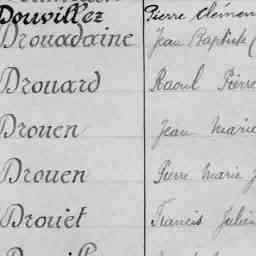 Douvillez Pierre Clémen
Drouadaine Jean Baptiste (
Drouard Raoul Pierre
Drouen Jean Marie
Drouen Pierre Marie J
Drouet Francis Julien